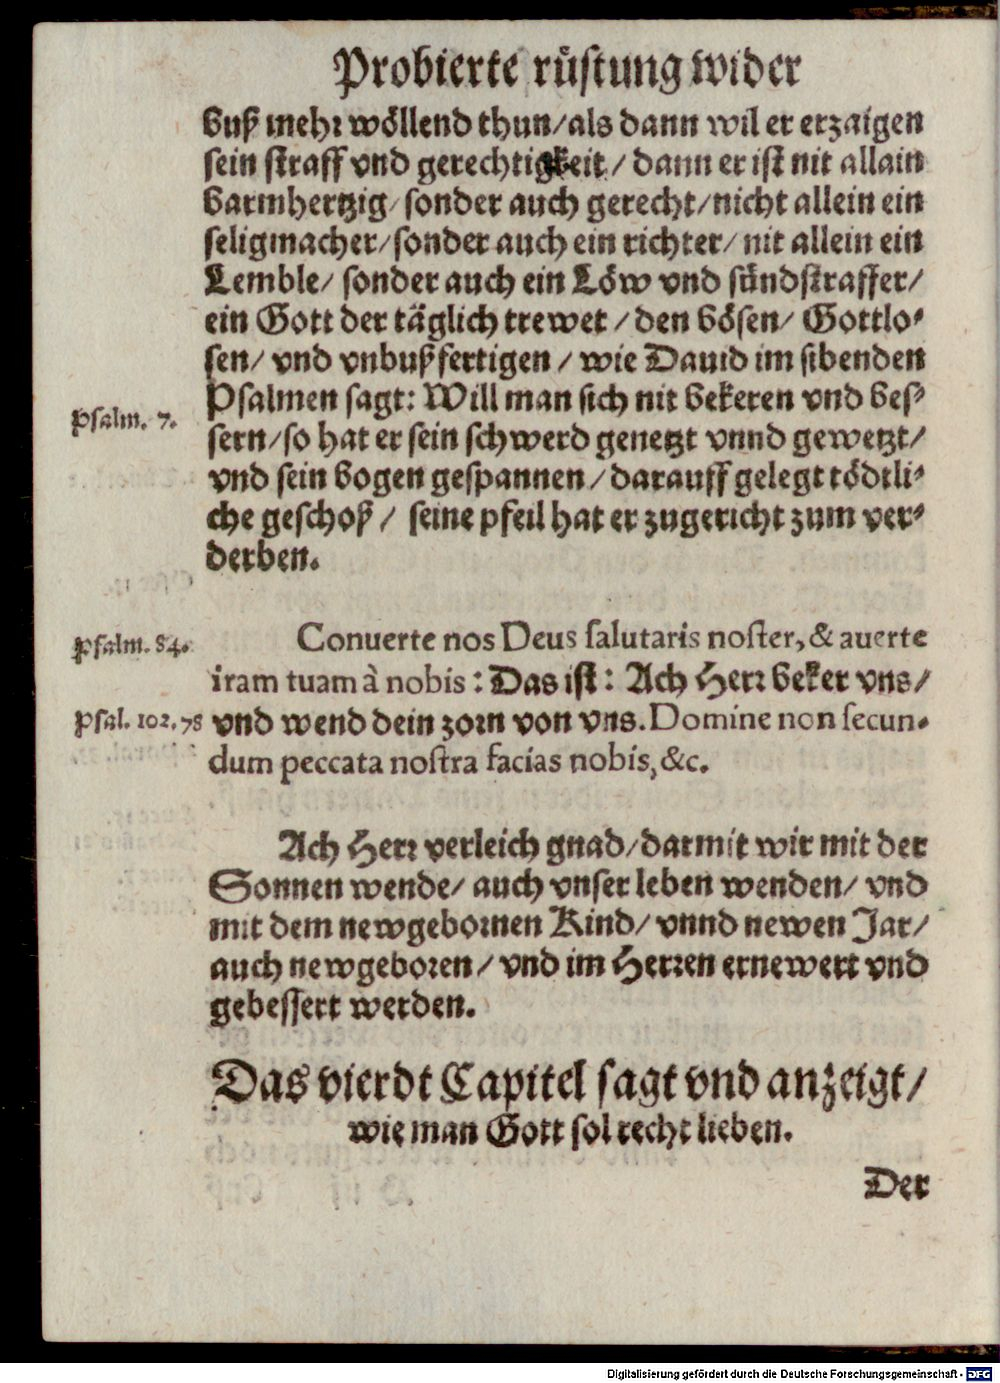 Probierte rüstung wider
buß mehr wöllend thun/als dann wil er erzaigen
sein straff vnd gerechtigkeit/ dann er ist nit allain
barmhertzig/ sonder auch gerecht/nicht allein ein
seligmacher/sonder auch ein richter/ nit allein ein
Lemble/ sonder auch ein Löw vnd sündstraffer/
ein Gott der täglich trewet /den bösen/ Gottlo-
sen/ vnd vnbußfertigen / wie Dauid im sibenden
Psalmen sagt: Will man sich nit bekeren vnd bes-
Psalm. 7.
sern/so hat er sein schwerd genetzt vnnd gewetzt/
vnd sein bogen gespannen /darauff gelegt tödtli-
che geschoß / seine pfeil hat er zugericht zum ver-
derben.
Psalm. 84.
Conuerte nos Deus salutaris noster, & auerte
iram tuam à nobis: Das ist: Ach Herr beker vns/
Psal. 102. 78
vnd wend dein zorn von vns. Domine non secun-
dum peccata nostra facias nobis, &c.
Ach Herr verleich gnad/darmit wir mit der
Sonnen wende/ auch vnser leben wenden/ vnd
mit dem newgebornen Kind/ vnnd newen Jar/
auch newgeboren/ vnd im Herren ernewert vnd
gebessert werden.
Das vierdt Capitel sagt vnd anzeigt/
wie man Gott sol recht lieben.
Der
Digitalisierung gefördert durch die Deutsche Forschungsgemeinschaft - DFG